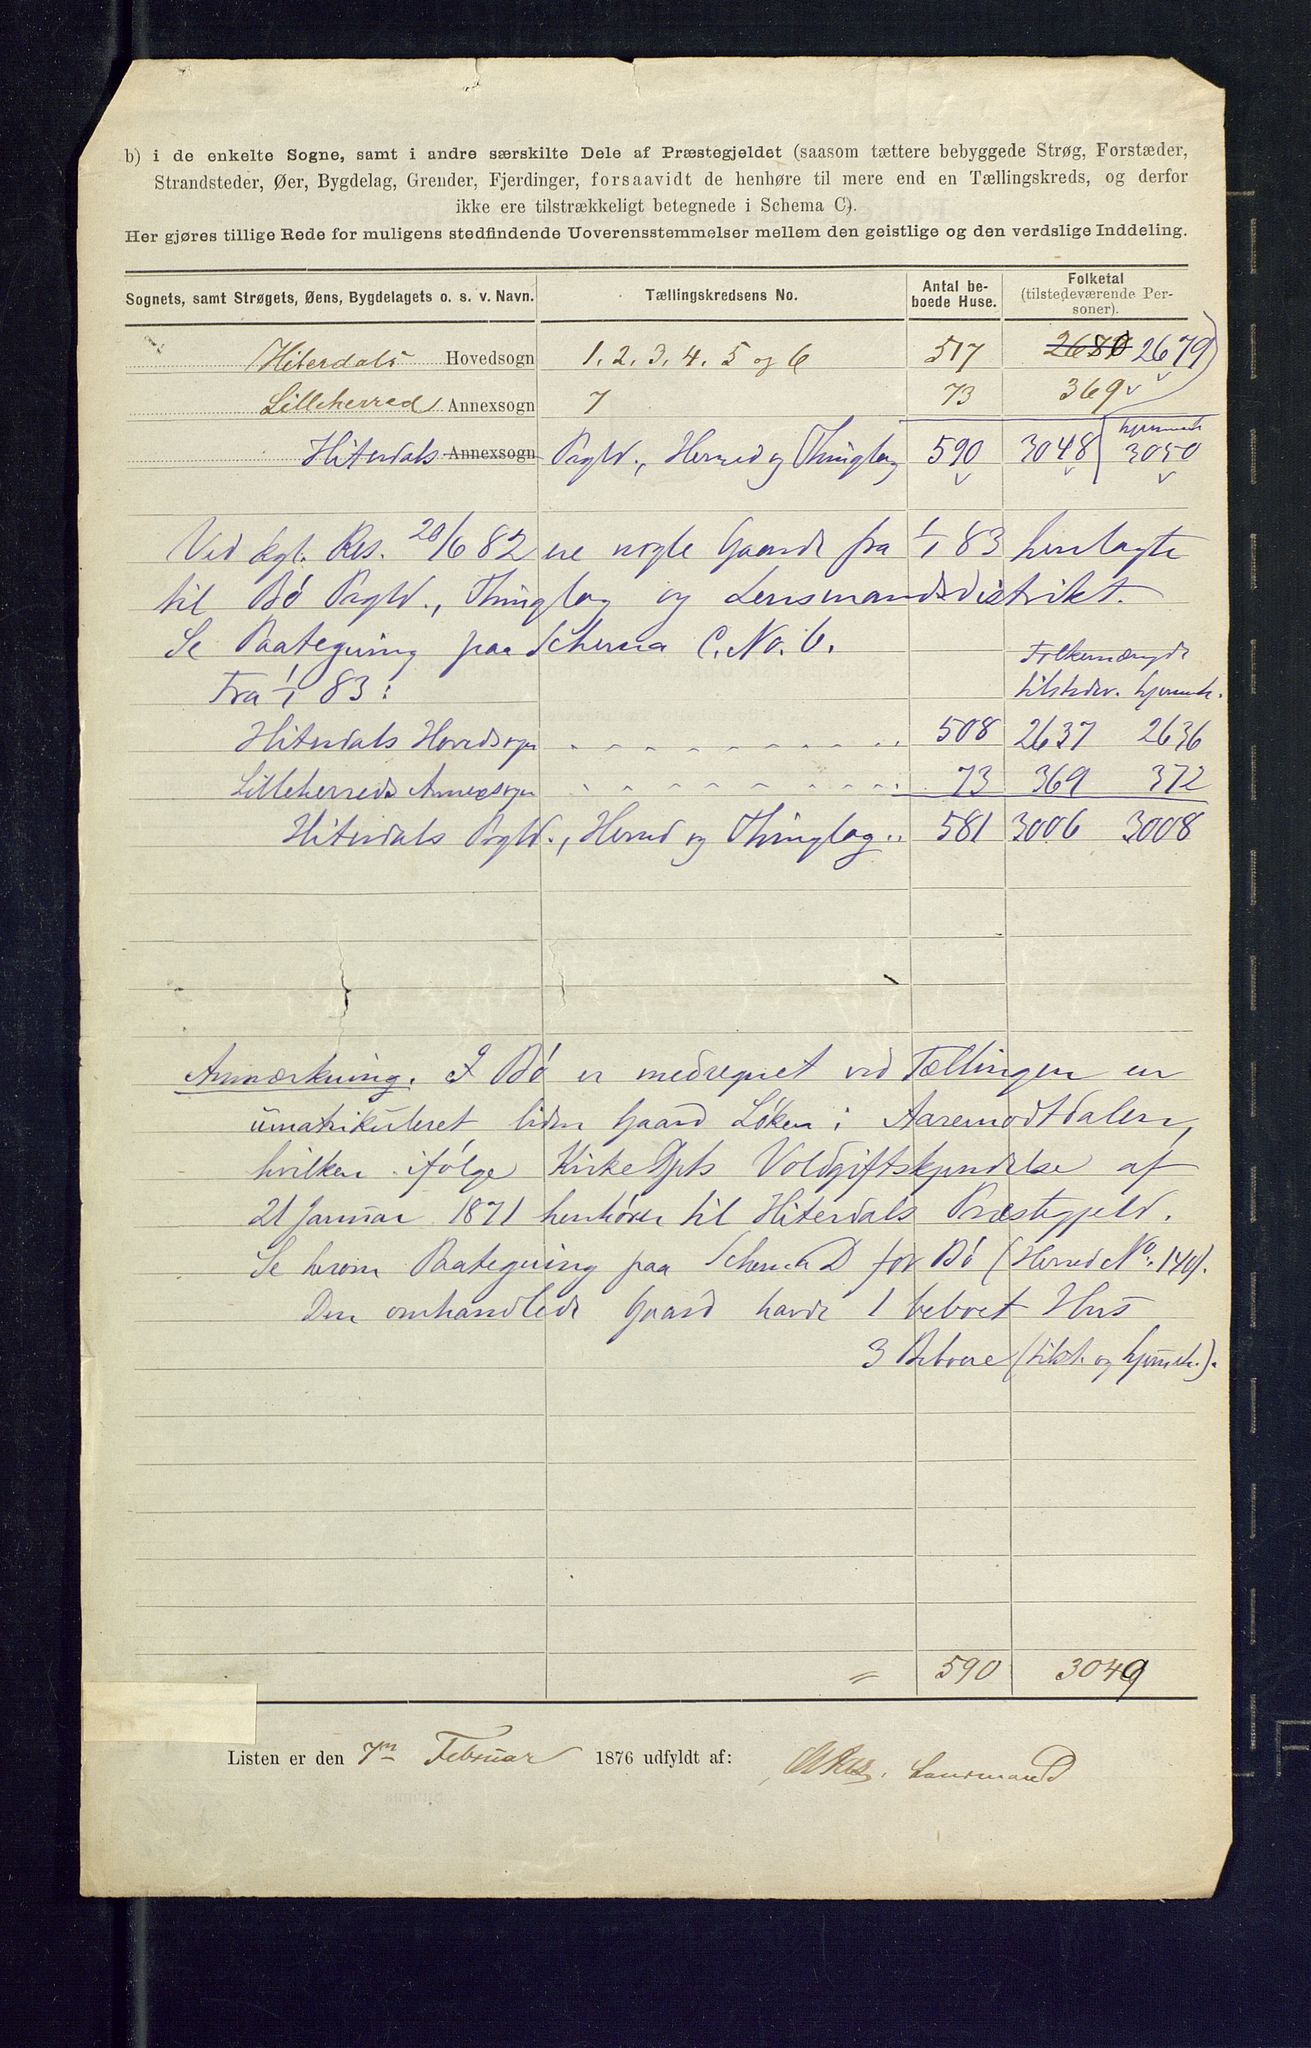 b) i de enkelte Sogne, samt i andre særskilte Dele af Præstegjeldet (saasom tættere bebyggede Strøg, Forstæder,
Strandsteder, Øer, Bygdelag, Grender, Fjerdinger, forsaavidt de henhøre til mere end en Tællingskreds, og derfor
ikke ere tilstrækkeligt betegnede i Schema C).
Her gjøres tillige Rede for muligens stedfindende Uoverensstemmelser mellem den geistlige og den verdslige Inddeling.
Sognets, samt Strøgets, Øens, Bygdelagets o. s. v. Navn. Tællingskredsens No. Antal beboede Huse. Folketal (tilstedeværende Personer).
Hiterdals Hovedsogn 1, 2, 3, 4, 5 og 6 517 2680 2679
Lilleherred Annexsogn 7 73 369
Hiterdals Annexsogn Prgld., Herred og Thinglag 590 3048 hjemmeh. 3050
Ved kgl. Res. 20/6 82 ere nogle Gaarde fra 1/1 83 henlagte
til Bø Prgld., Thinglag og Lensmandsdistrikt.
Se Paategning paa Schema C. No. 6.
Folkemængde
Fra 1/1 83: tilstedev. hjemmeh.
Hiterdals Hovedsogn 508 2637 2636
Lilleherreds Annexsogn 73 369 372
Hiterdals Prgld., Herred og Thinglag 581 3006 3008
Anmærkning. I Bø er medregnet ved Tællingen en
umatrikuleret liden Gaard Løken i Aaremodtdalen,
hvilken ifølge Kirke Dpts Voldgiftskjendelse af
21 Januar 1871 henhører til Hiterdals Præstegjeld.
Se herom Paategning paa Schema D for Bø (Herred No. 140).
Den omhandlede Gaard havde 1 beboet Hus
3 Beboere (tilst. og hjemmeh.).
" 590 3049
Listen er den 7de Februar 1876 udfyldt af: Lensmand